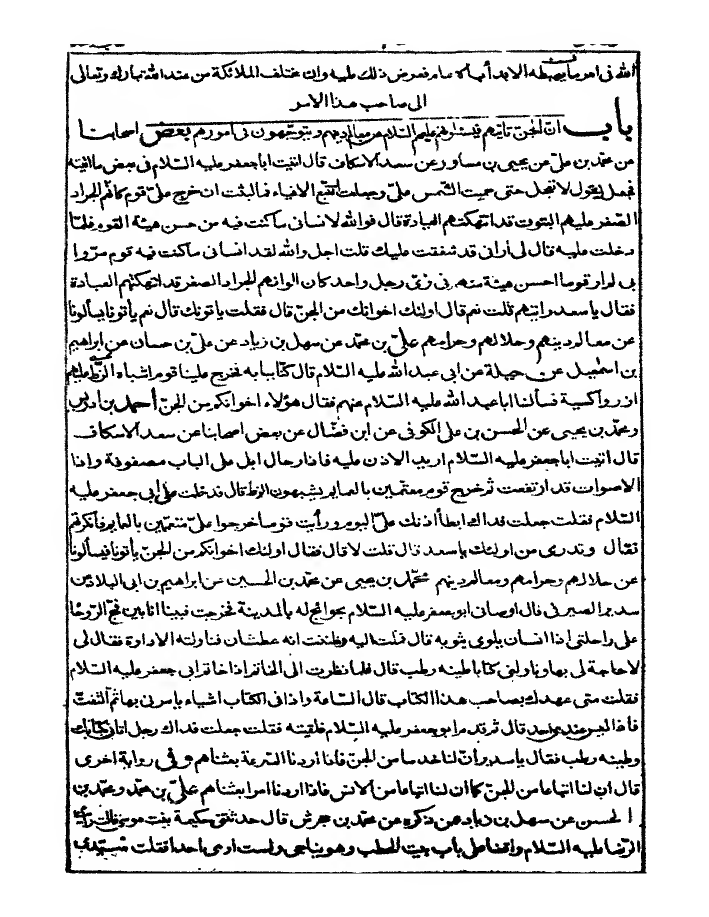 الله فى امر ما يهبطه الا بدأ بالامام فعرض ذلك عليه وان مختلف الملائكة من عند الله تبارك وتعالى
الى صاحب هذا الامر
باب ان الجن تاتيهم فيسئلونهم عليهم السلام عن معالم دينهم ويتوجهون فى امورهم بعض اصحابنا
عن محمد بن على عن يحيى بن مساور عن سعد الاسكاف قال اتيت اباجعفر عليه السلام فى بعض ما اتيته
فجعل يقول لا تعجل حتى حميت الشمس على وجعلت اتتبع الافياء فما لبثت ان خرج على قوم كانهم الجراد
الصفر عليهم البتوت قد انتهكتهم العبادة قال فوالله لانسانى ما كنت فيه من حسن هيئة القوم فلما
دخلت عليه قال لى أرانى قد شققت عليك قلت اجل والله لقد انسانى ما كنت فيه قوم مروا
بى لم ار قوما احسن هيئة منهم فى زى رجل واحد كان الوانهم الجراد الصفر قد انتهكتهم العبادة
فقال يا سعد رايتهم قلت نعم قال اولئك اخوانك من الجن قال فقلت ياتونك قال نعم يأتونا يسألونا
عن معالم دينهم وحلالهم وحرامهم على بن محمد عن سهل بن زياد عن على بن حسان عن ابراهيم
بن اسمعيل عن جبلة عن ابى عبد الله عليه السلام قال كنا ببابه فخرج علينا قوم اشباه الزط عليهم
ازر واكسية فسألنا اباعبد الله عليه السلام عنهم فقال هؤلاء اخوانكم من الجن أحمد بن ادريس
ومحمد بن يحيى عن الحسن بن على الكوفى عن ابن فضال عن بعض اصحابنا عن سعد الاسكاف
قال اتيت اباجعفر عليه السلام اريد الاذن عليه فاذا رحال ابل على الباب مصفوفة واذا
الاصوات قد ارتفعت ثم خرج قوم معتمين بالعمايم يشبهون الزط قال فدخلت على أبى جعفر عليه
السلام فقلت جعلت فداك ابطأ اذنك على اليوم ورأيت قوما خرجوا على معتمين بالعمايم فانكرتهم
فقال وتدرى من اولئك ياسعد قال قلت لا قال فقال اولئك اخوانكم من الجن يأتونا فيسألونا
عن حلالهم وحرامهم ومعالم دينهم محمد بن يحيى عن محمد بن الحسين عن ابراهيم بن ابى البلاد عن
سدير الصيرفى قال اوصانى ابوجعفر عليه السلام بحوائج له بالمدينة فخرجت فبينا انا بين فج الروحا
على راحلتى اذا انسان يلوى بثوبه قال فملت اليه وظننت انه عطشان فناولته الاداوة فقال لى
لا حاجة لى بها وناولنى كتابا طينه رطب قال فلما نظرت الى الخاتم اذا خاتم ابى جعفر عليه السلام
فقلت متى عهدك بصاحب هذا الكتاب قال الساعة واذا فى الكتاب اشياء يامرنى بها ثم التفت
فاذا ليس عندى احد قال ثم قدم ابوجعفر عليه السلام فلقيته فقلت جعلت فداك رجل اتانى بكتابك
وطينه رطب فقال ياسدير أن لنا خدما من الجن فاذا اردنا السرعة بعثناهم وفى رواية اخرى
قال ان لنا اتباعا من الجن كما ان لنا اتباعا من الانس فاذا اردنا امرا بعثناهم على بن محمد ومحمد بن
الحسن عن سهل بن زياد عمن ذكره عن محمد بن جحرش قال حدثتنى حكيمة بنت موسى قالت رأيت
الرضا عليه السلام واقفا على باب بيت الحطب وهو يناجى ولست ارى احدا فقلت سيدى